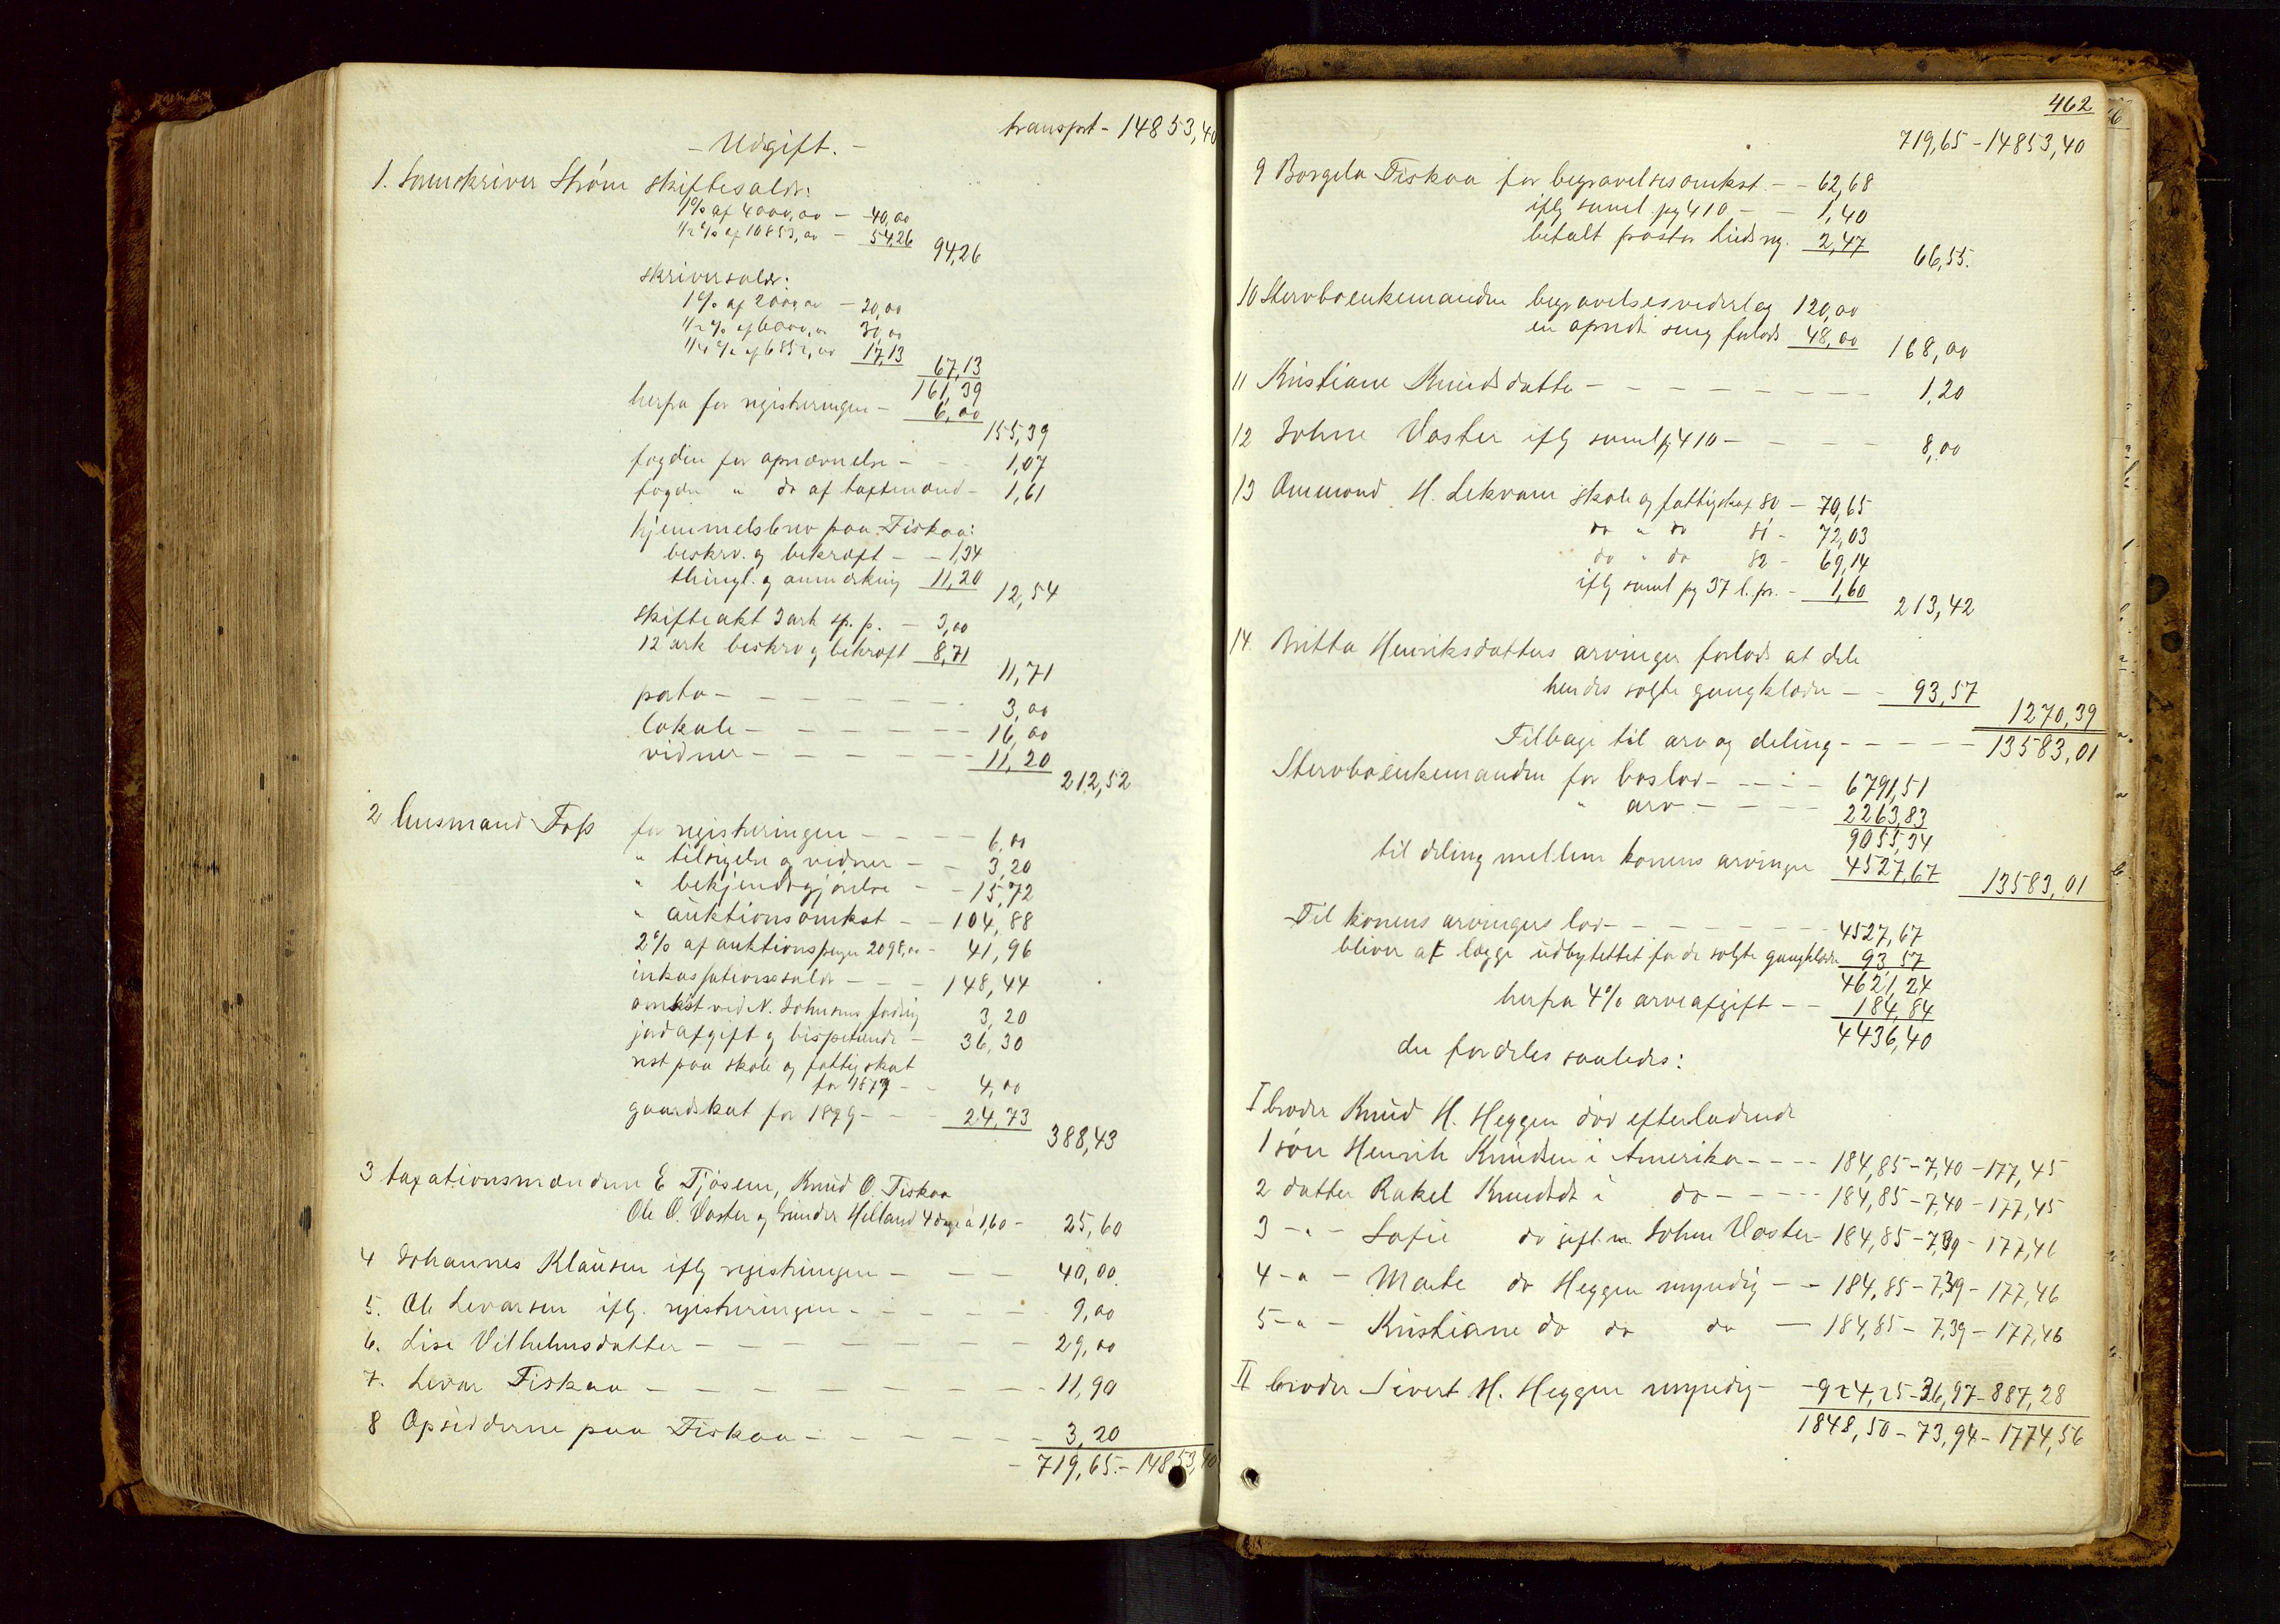 transprt - 14853,40
- Udgift. -
1. Sorenskriver Strøm skiftesalær:
1% af 4000,00 - 40,00
1/2 % af 10853,00 - 54,26 94,26
skriversalær:
1% af 2000,00 - 20,00
1/2 % af 6000,00 30,00
1/4 % af 6852,00 17,13 67,13
161,39
herfra for registreringen - 6,00
155,39
fogden for opnævnelse - - 1,07
fogden " do af taxtmænd - 1,61
hjemmelsbrev paa Fiskaa:
beskrv. og bekræft - - 1,34
thingl. og anmærkning 11,20 12,54
skifteakt 3 ark st. p. - 3,00
12 ark beskrv og bekræft 8,71
11,71
porto - - - - - - 3,00
lokale - - - - - - 16,00
vidner - - - - - - 11,20
212,52
2 lensmand Foss for registreringen - - - - 6,00
" tilsigelse og vidner - - 3,20
" bekjendtgjørelse - - 15,72
" auktionsomkst - - 104,88
2% af auktionspenger 2098,00 - 41,96
inkassationssalær - - - 148,44
omkst ved N. Johnsens fordring 3,20
jordafgift og bispetiende - 36,30
rest paa skole og fattigskat
for 1879 - - 4,00
gaardskat for 1879 - - - 24,73
388,43
3 taxationsmændene E Tjøsem, Knud O. Fiskaa
Ole O. Vaster og Gunder Helland 4 dage á 1,60 - 25,60
4 Johannes Klausen iflg registreringen - - - 40,00
5. Ole Levarsen iflg. registreringen - - - - - 9,00
6. Lise Vilhelmsdatter - - - - - - 29,00
7. Levar Fiskaa - - - - - - - 11,90
8 Opsidderne paa Fiskaa - - - - - - 3,20
- 719,65 - 14853,40
462
719,65 - 14853,40
9 Borgela Fiskaa for begravelsesomkst. - - 62,68
iflg saml. pg 410 - - 1,40
betalt prosten Lieds rg. 2,47
66,55.
10 Stervboenkemanden begravelsesvederlag 120,00
en opredt seng forlods 48,00 168,00
11 Kristiane Knudsdatter - - - - - - - 1,20
12 Johne Vaster iflg saml pg 410 - - - - 8,00
13 Ommond H. Lekvam skole og fattigskat 80 - 70,65
do " do 81 - 72,03
do " do 82 - 69,14
iflg saml pg 37 l. pr. - 1,60
213,42
14. Britta Henriksdatters arvinger forlods at dele
hendes solgte gangklæder - - 93,57
1270,39
Tilbage til arv og deling - - - - - 13583,01
Stervboenkemanden for boslod - - - - 6791,51
" arv - - - - 2263,83
9055,34
til deling mellem konens arvinger 4527,67
13583,01
Til konens arvingers lod - - - - - - - 4527,67
bliver at lægge udbyttet for de solgte gangklæder 93,57
4621,24
herfra 4% arveafgift - - 184,84
4436,40
der fordeles saaledes:
I broder Knud H. Heggen død efterladende
1 søn Henrik Knudsen i Amerika - - - - 184,85 - 7,40 - 177,45
2 datter Rakel Knudsdt i do - - - - - 184,85 - 7,40 - 177,45
3 - " - Sofie do gift m. Johne Vaster - 184,85 - 7,39 - 177,46
4 - " - Marte do Heggen myndig - - 184,85 - 7,39 - 177,46
5 - " - Kristiane do do do - 184,85 - 7,39 - 177,46
II broder Sivert H. Heggen myndig - - 924,25 - 36,97 - 887,28
1848,50 - 73,94 - 1774,56